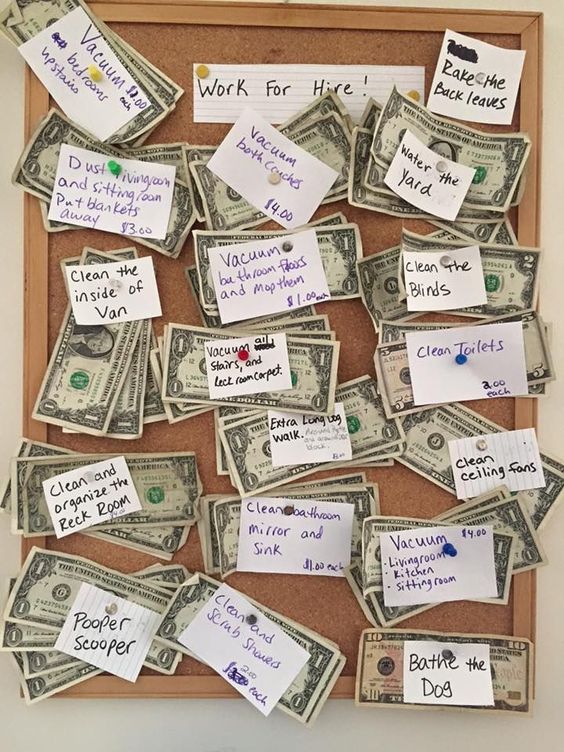 Work For Hire!
Vacuum
bedrooms
upstairs
$2.00
each
Rake the
Back leaves
Vacuum
both couches
$4.00
Water the
Yard
Dust livingroom
and sittingroom
Put blankets
away
$3.00
Clean the
inside of
Van
Vacuum
bathroom floors
and mop them
$1.00 each
Clean the
Blinds
Vacuum all
Stairs, and
Reck room carpet.
Clean Toilets
2.00
each
Extra Long Dog
walk.
block.
Clean
ceiling fans
Clean and
organize the
Reck Room
Clean bathroom
mirror and
sink
$1.00 each
Vacuum $4.00
• Livingroom
• Kitchen
• Sittingroom
Pooper
Scooper
Clean and
Scrub Showers
2.00
each
Bathe the
Dog